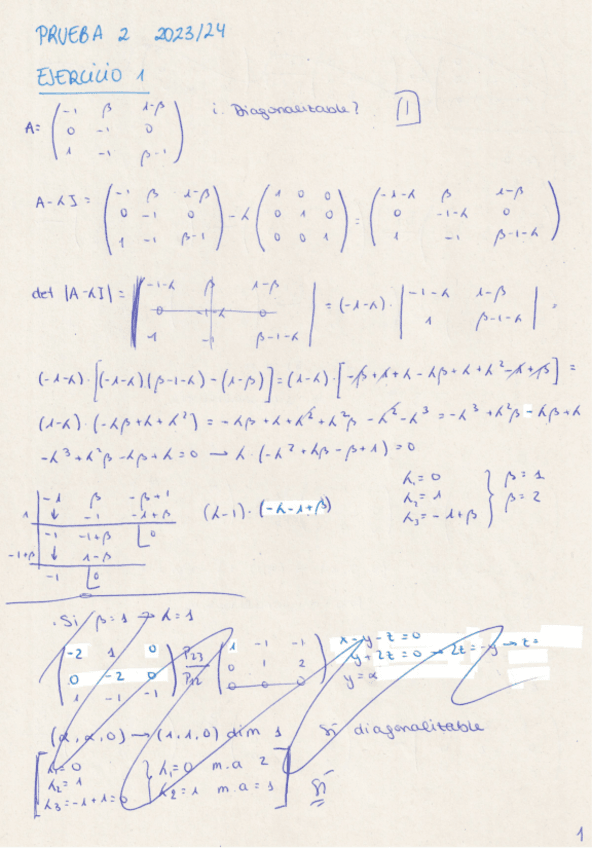 PRUEBA 2 2023/24
EJERCICIO 1
A= ( -1 β 1-β ) ¿Diagonalizable? 1
( 0 -1 0 )
( 1 -1 β-1 )
A-λI = ( -1 β 1-β ; 0 -1 0 ; 1 -1 β-1 ) - λ ( 1 0 0 ; 0 1 0 ; 0 0 1 ) = ( -1-λ β 1-β ; 0 -1-λ 0 ; 1 -1 β-1-λ )
det |A-λI| = | -1-λ β 1-β ; 0 -1-λ 0 ; 1 -1 β-1-λ | = (-1-λ) · | -1-λ 1-β ; 1 β-1-λ | =
(-1-λ) · [(-1-λ)(β-1-λ) - (1-β)] = (1-λ) · [-β+1+λ-λβ+λ+λ²-1+β] =
(1-λ) · (-λβ+λ+λ²) = -λβ+λ+λ²+λ²β-λ²-λ³ = -λ³+λ²β-λβ+λ
-λ³+λ²β-λβ+λ=0 → λ·(-λ²+λβ-β+1)=0
-1 β -β+1
1 ↓ -1 -1+β
-1 -1+β 0
-1+β ↓ 1-β
-1 0
(λ-1)·(-λ-1+β)
λ₁=0
λ₂=1
λ₃=-1+β
β=1
β=2
· Si β=1 → λ=1
( -2 1 0 ; 0 -2 0 ; 1 -1 -1 ) P₂₃ P₁₂ ( 1 -1 -1 ; 0 1 2 ; 0 0 0 )
x-y-z=0
y+2z=0 → 2z=-y → z=
y=α
(α,α,0) → (1,1,0) dim 1 Sí diagonalizable
λ₁=0
λ₂=1
λ₃=-1+1=0
λ₁=0 m.a 2
λ₂=1 m.a=1
Sí
1